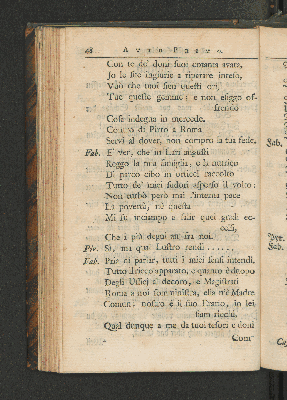 48 ATTO PRIMO
Con te de' doni suoi cotanta avara,
Io le sue ingiurie a riparare inteso,
Vuò che tuoi sien questi ori,
Tue queste gemme; e non eliggo of-
frendo
Cosa indegna in mercede.
Come di Pirro a Roma
Servi al dover, non compro la tua fede.
Fab. E' ver, che in Lari angusti
Reggo la mia famiglia, e la nutrico
Di parco cibo in orticel raccolto
Tutto de' miei sudori asperso il volto:
Non turbò però mai l'interna pace
La povertà, nè questa
Mi fu inciampo a salir quei gradi ec-
celsi,
Che i più degni an fra noi.
Pir. Sì, ma qual Lustro rendi . . . . . .
Fab. Pria di parlar, tutti i miei sensi intendi.
Tutto il ricco apparato, e quanto è d'uopo
Degli Uffici al decoro, e Magistrati
Roma a noi somministra, ella n'è Madre
Comun; nostro è il suo Erario, in lei
siam ricchi.
Qual dunque a me da' tuoi tesori e doni
Com-
Fab.